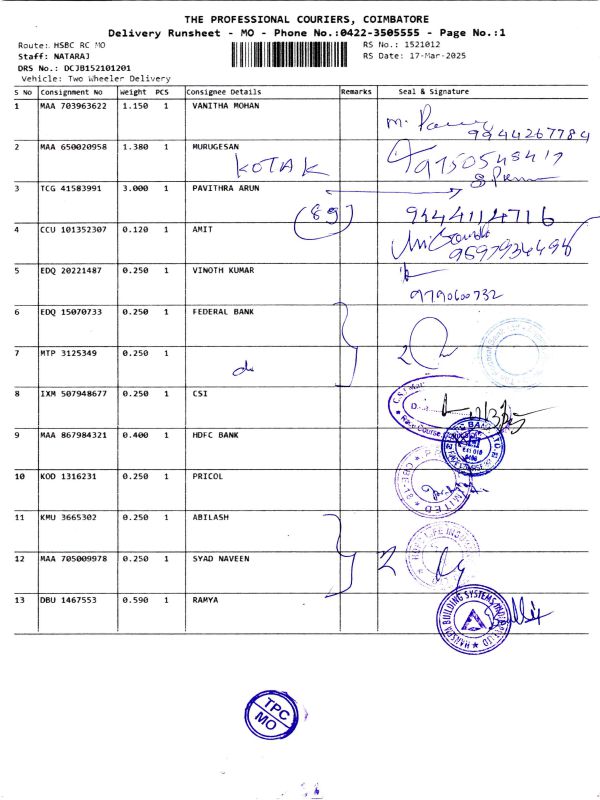 THE PROFESSIONAL COURIERS, COIMBATORE
Delivery Runsheet - MO - Phone No.:0422-3505555 - Page No.:1
Route: HSBC RC MO
RS No.: 1521012
Staff: NATARAJ
RS Date: 17-Mar-2025
DRS No.: DCJB152101201
Vehicle: Two Wheeler Delivery
S No Consignment No Weight PCS Consignee Details Remarks Seal & Signature
1 MAA 703963622 1.150 1 VANITHA MOHAN
9944267784
2 MAA 650020958 1.380 1 MURUGESAN
KOTAK
3 TCG 41583991 3.000 1 PAVITHRA ARUN
(89) 9444114716
4 CCU 101352307 0.120 1 AMIT
5 EDQ 20221487 0.250 1 VINOTH KUMAR
9790600732
6 EDQ 15070733 0.250 1 FEDERAL BANK
2
7 MTP 3125349 0.250 1
do
8 IXM 507948677 0.250 1 CSI
9 MAA 867984321 0.400 1 HDFC BANK
10 KOD 1316231 0.250 1 PRICOL
11 KMU 3665302 0.250 1 ABILASH
12 MAA 705009978 0.250 1 SYAD NAVEEN
2
13 DBU 1467553 0.590 1 RAMYA
TPC
MO